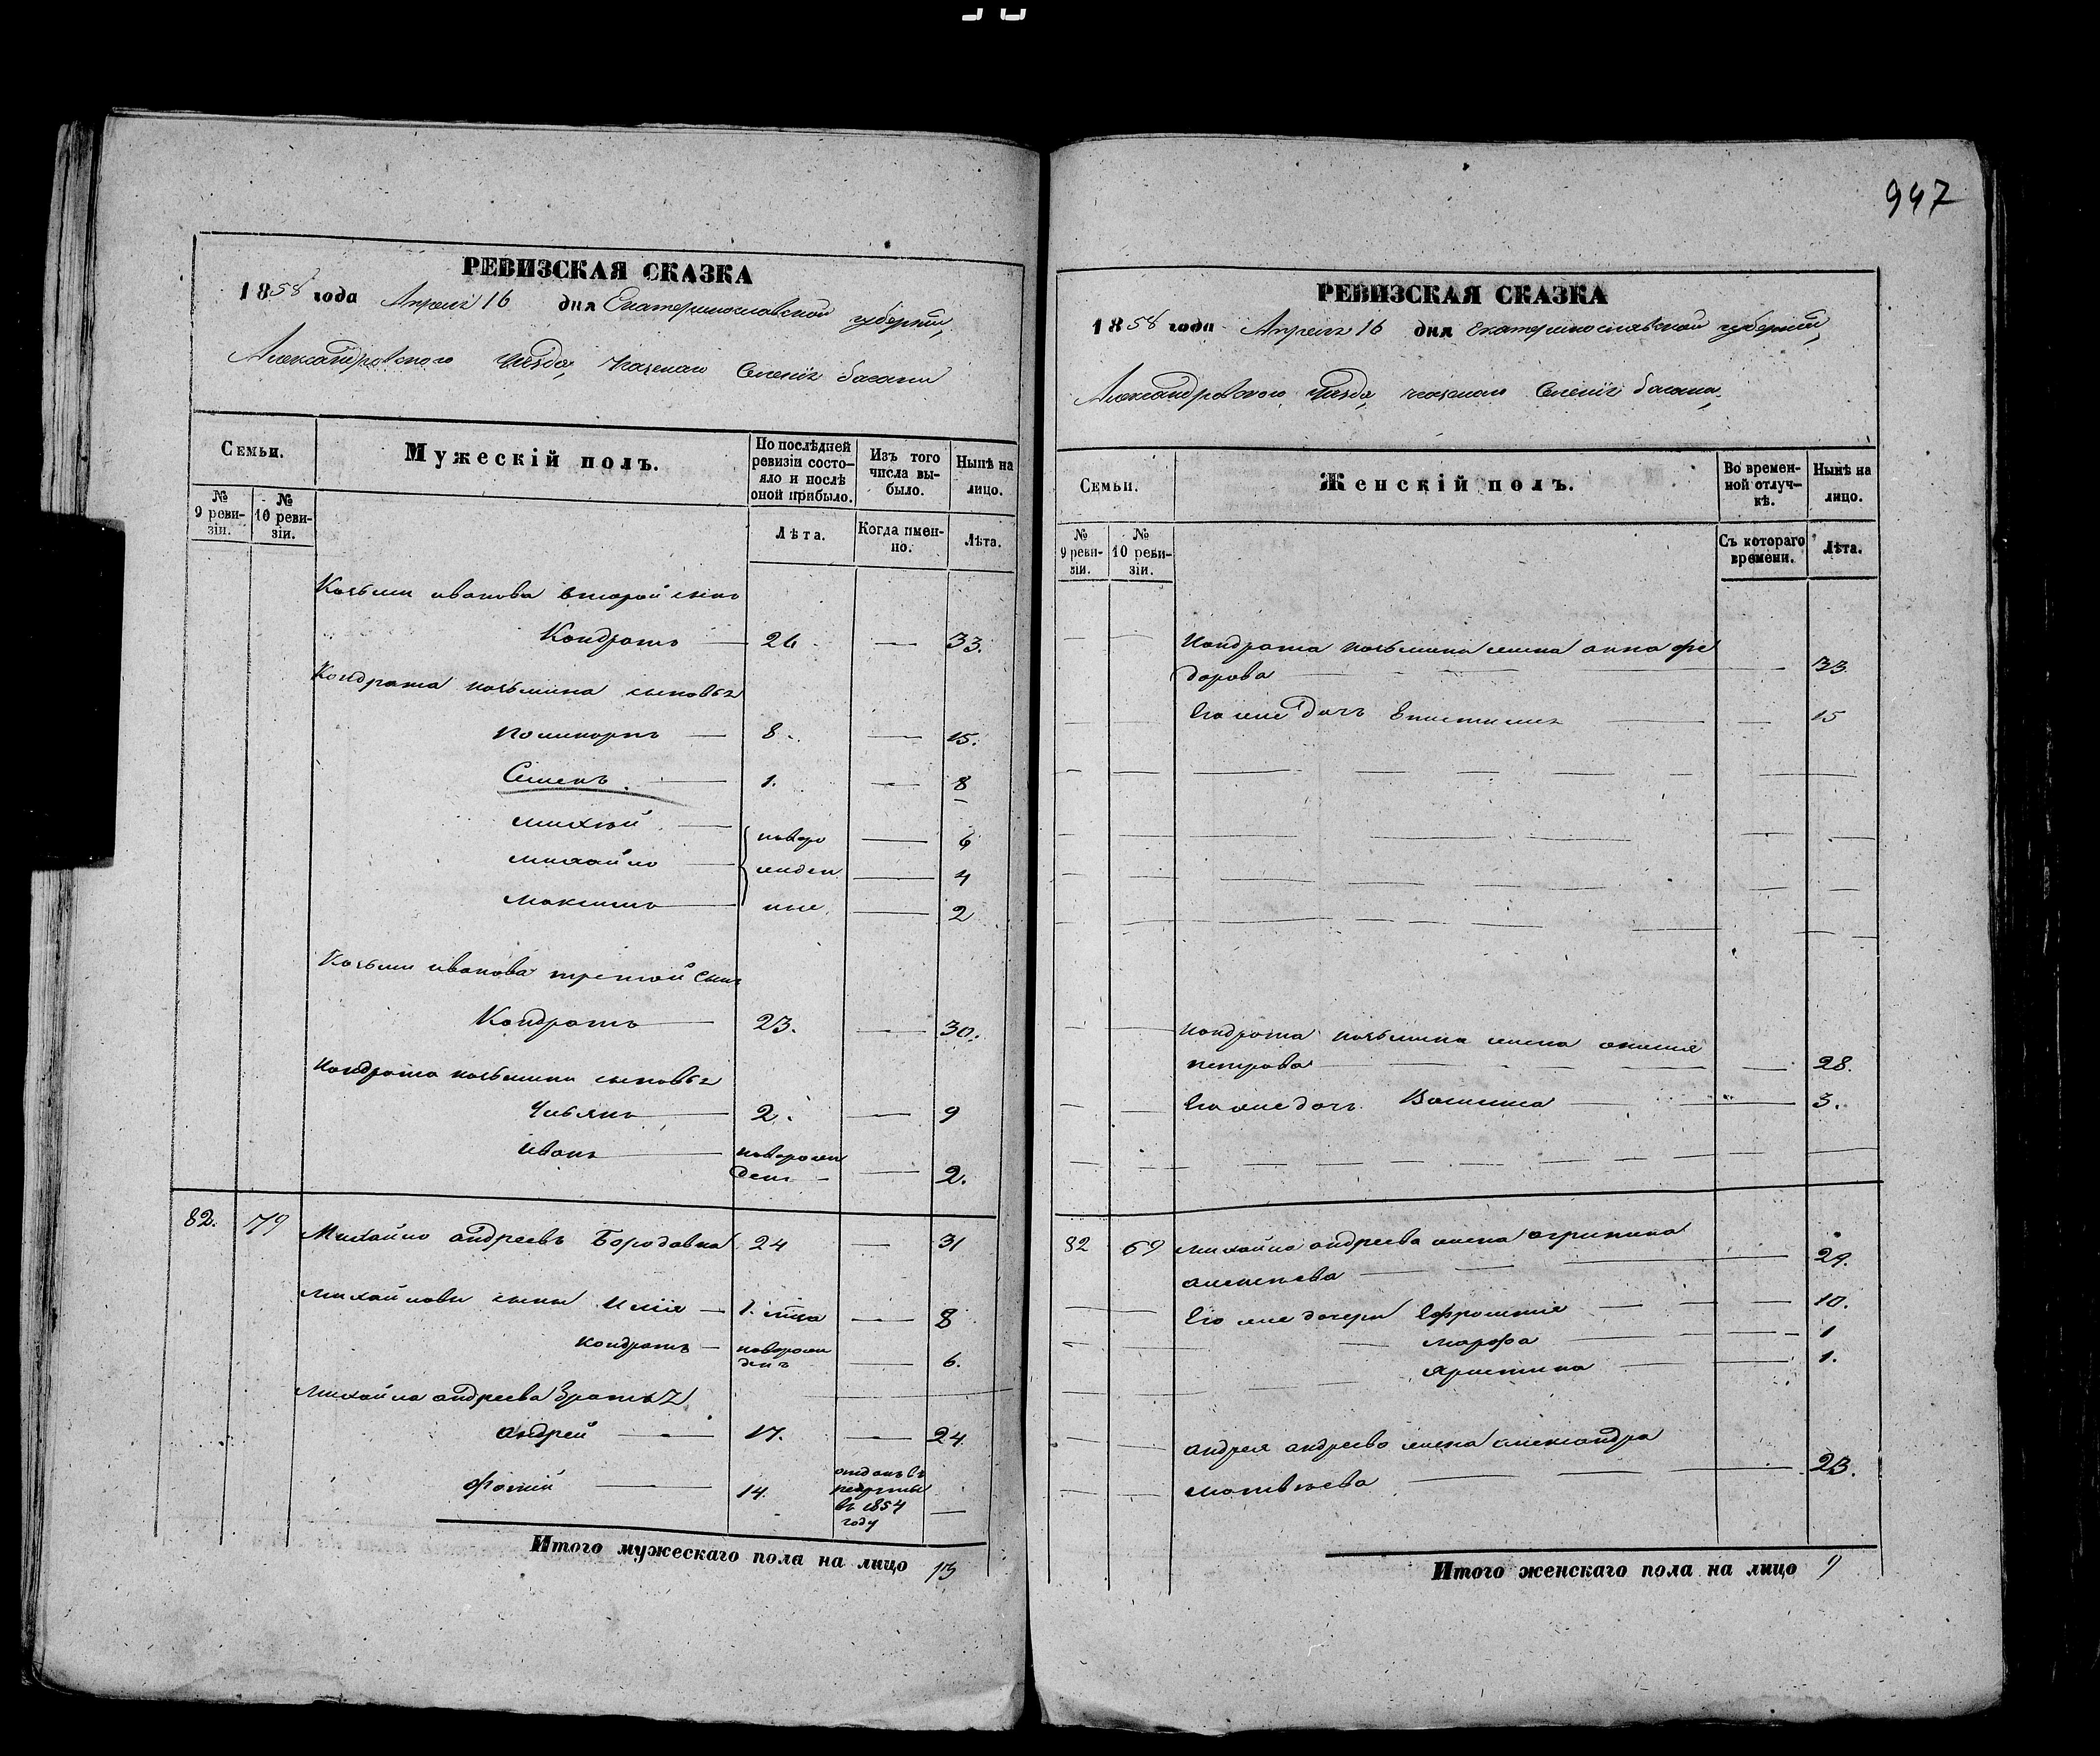 947
РЕВИЗСКАЯ СКАЗКА
1858 года Апреля 16 дня Екатеринославской губернии,
Александровского уезда, казенаго Селенія басани
Семьи.
Мужескій полъ.
По послѣдней ревизіи состояло и послѣ оной прибыло.
Изъ того числа выбыло.
Нынѣ на лицо.
№ 9 ревизіи.
№ 10 ревизіи.
Лѣта.
Когда именно.
Лѣта.
Козьми иванова второй сынъ
Кондратъ 26 33.
Кондрата козьмина сыновья
поликарпъ 8 15.
Семенъ 1. 8
михѣй новоро 6
михайло жден 4
максимъ ные 2
Козьми иванова третой сынъ
Кондратъ 23. 30.
Кондрата козьмина сыновья
Ульянъ 2. 9
иванъ новорож
денъ 2.
82. 79 Михайло андреевъ Бородавка 24 31
михайлови сыны илія 1. 8
кондратъ новорож
денъ 6.
михайла андреева братья 2
андрей 17. 24
фотий 14. отданъ въ
рекруты
въ 1854
году
Итого мужескаго пола на лицо 13
РЕВИЗСКАЯ СКАЗКА
1858 года Апреля 16 дня Екатеринославской губерніи,
Александровского уезда, казенаго Селенія басани,
Семьи.
Женскій полъ.
Во временной отлучкѣ.
Нынѣ на лицо.
№ 9 ревизіи.
№ 10 ревизіи.
Съ котораго времени.
Лѣта.
Кондрата козьмина жена анна фе
дорова 33.
Его же дочь Епистимия 15
кондрата козьмина жена
петрова 28.
Его же дочь 3.
82 69 михайла андреева жена агрипина
алексѣева 29.
Его же дочери Ефросинія 10.
марфа 1
христина 1.
андрея андреева жена александра
матвѣева 23.
Итого женскаго пола на лицо 9